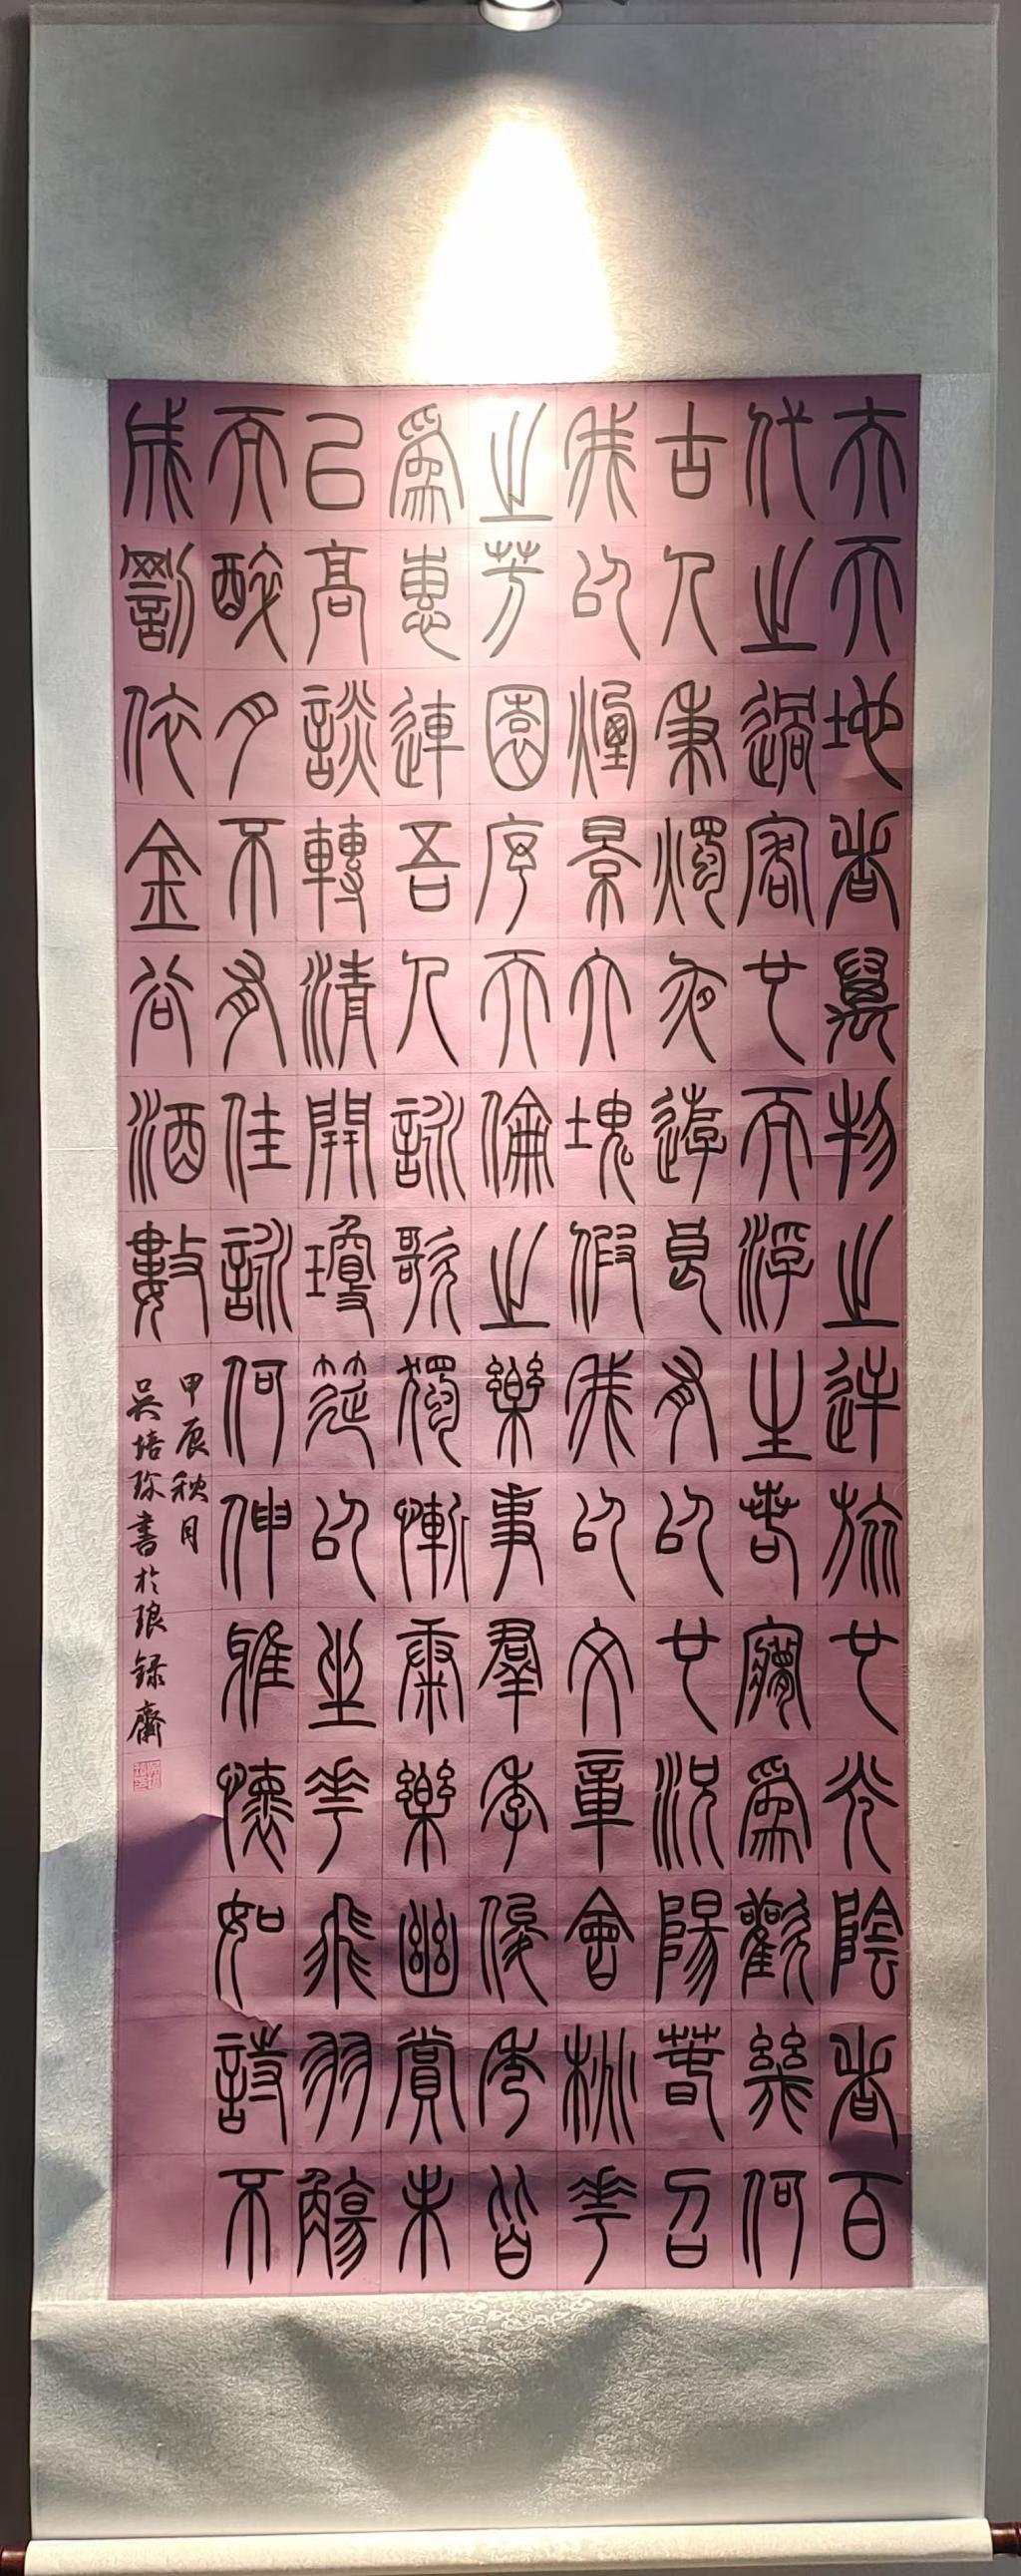 夫天地者萬物之逆旅也光陰者百
代之過客也而浮生若夢爲歡幾何
古人秉燭夜遊良有以也況陽春召
我以煙景大塊假我以文章會桃華
之芳園序天倫之樂事羣季俊秀皆
爲惠連吾人詠歌獨慚康樂幽賞未
已高談轉清開瓊筵以坐華飛羽觴
而醉月不有佳詠何伸雅懷如詩不
成罰依金谷酒數
甲辰秋月
吳培珍書於琅録齋